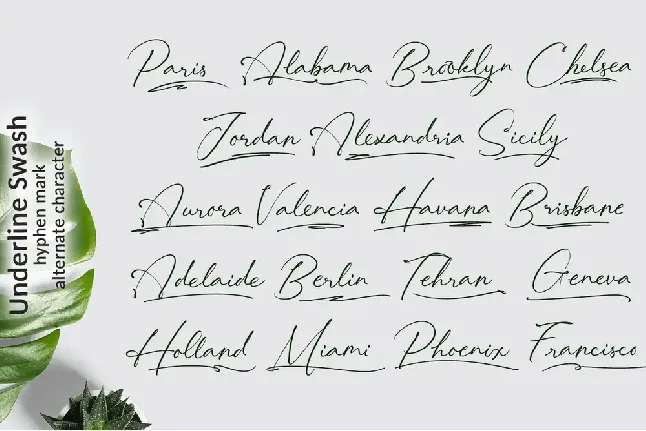 Underline Swash
hyphen mark
alternate character
Paris Alabama Brooklyn Chelsea
Jordan Alexandria Sicily
Aurora Valencia Havana Brisbane
Adelaide Berlin Tehran Geneva
Holland Miami Phoenix Francisco